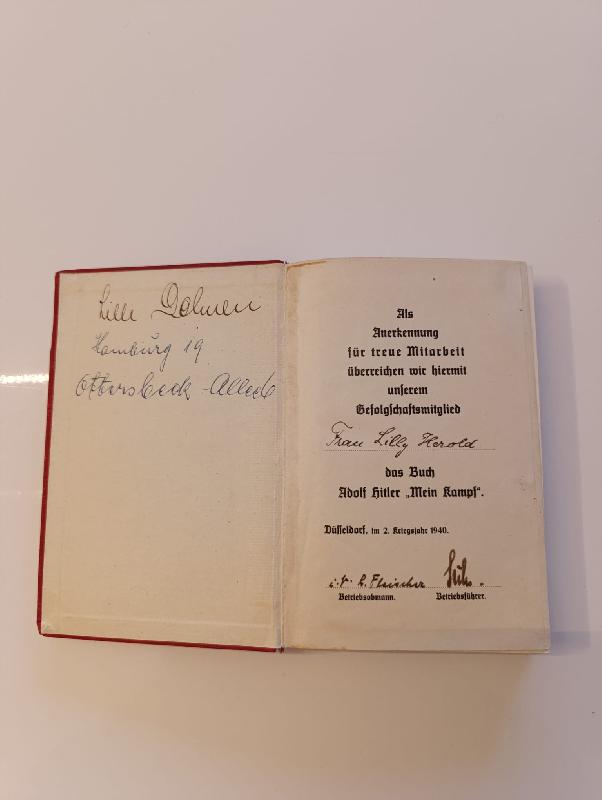 Hamburg 19
Als
Anerkennung
für treue Mitarbeit
überreichen wir hiermit
unserem
Gefolgschaftsmitglied
Frau Lilly Herold
das Buch
Adolf Hitler „Mein Kampf“.
Düsseldorf, im 2. Kriegsjahr 1940.
Fleischer
Betriebsobmann. Betriebsführer.